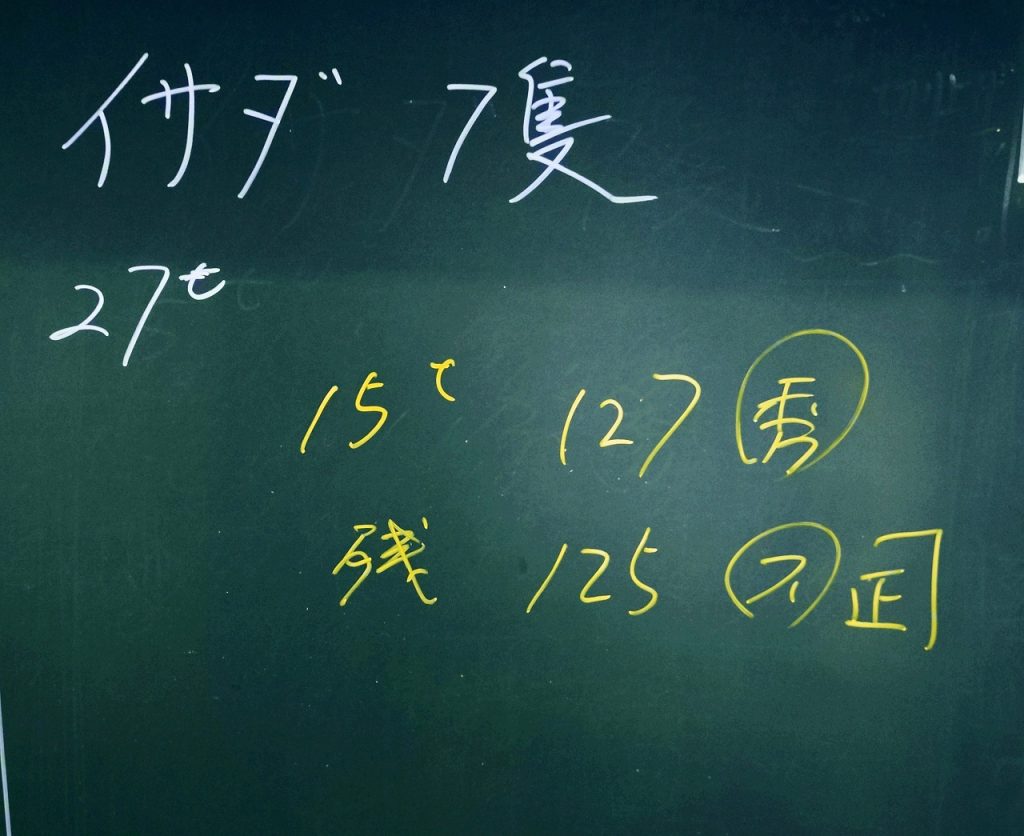 イサダ 7隻
27t
15t 127 秀
残 125 ス 正